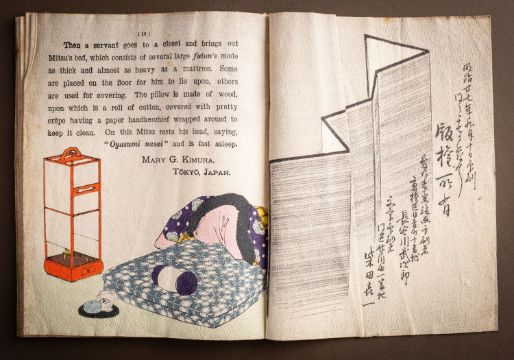 ( 18 )
Then a servant goes to a closet and brings out
Mitsu's bed, which consists of several large futon's made
as thick and almost as heavy as a mattress. Some
are placed on the floor for him to lie upon, others
are used for covering. The pillow is made of wood,
upon which is a roll of cotton, covered with pretty
crêpe having a paper handkerchief wrapped around to
keep it clean. On this Mitsu rests his head, saying,
"Oyasumi nasai" and is fast asleep.
MARY G. KIMURA.
TŌKYŌ, JAPAN.
明治廿七年九月十日印刷
版權所有
長谷川武次郎
柴田喜一